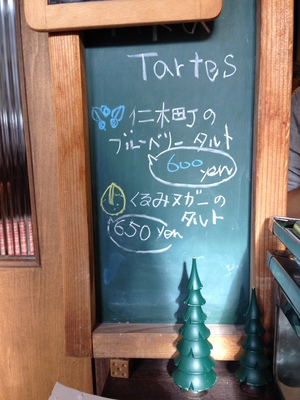 Tartes
仁木町の
ブルーベリー タルト
600
yen
くるみヌガーの
タルト
650 yen